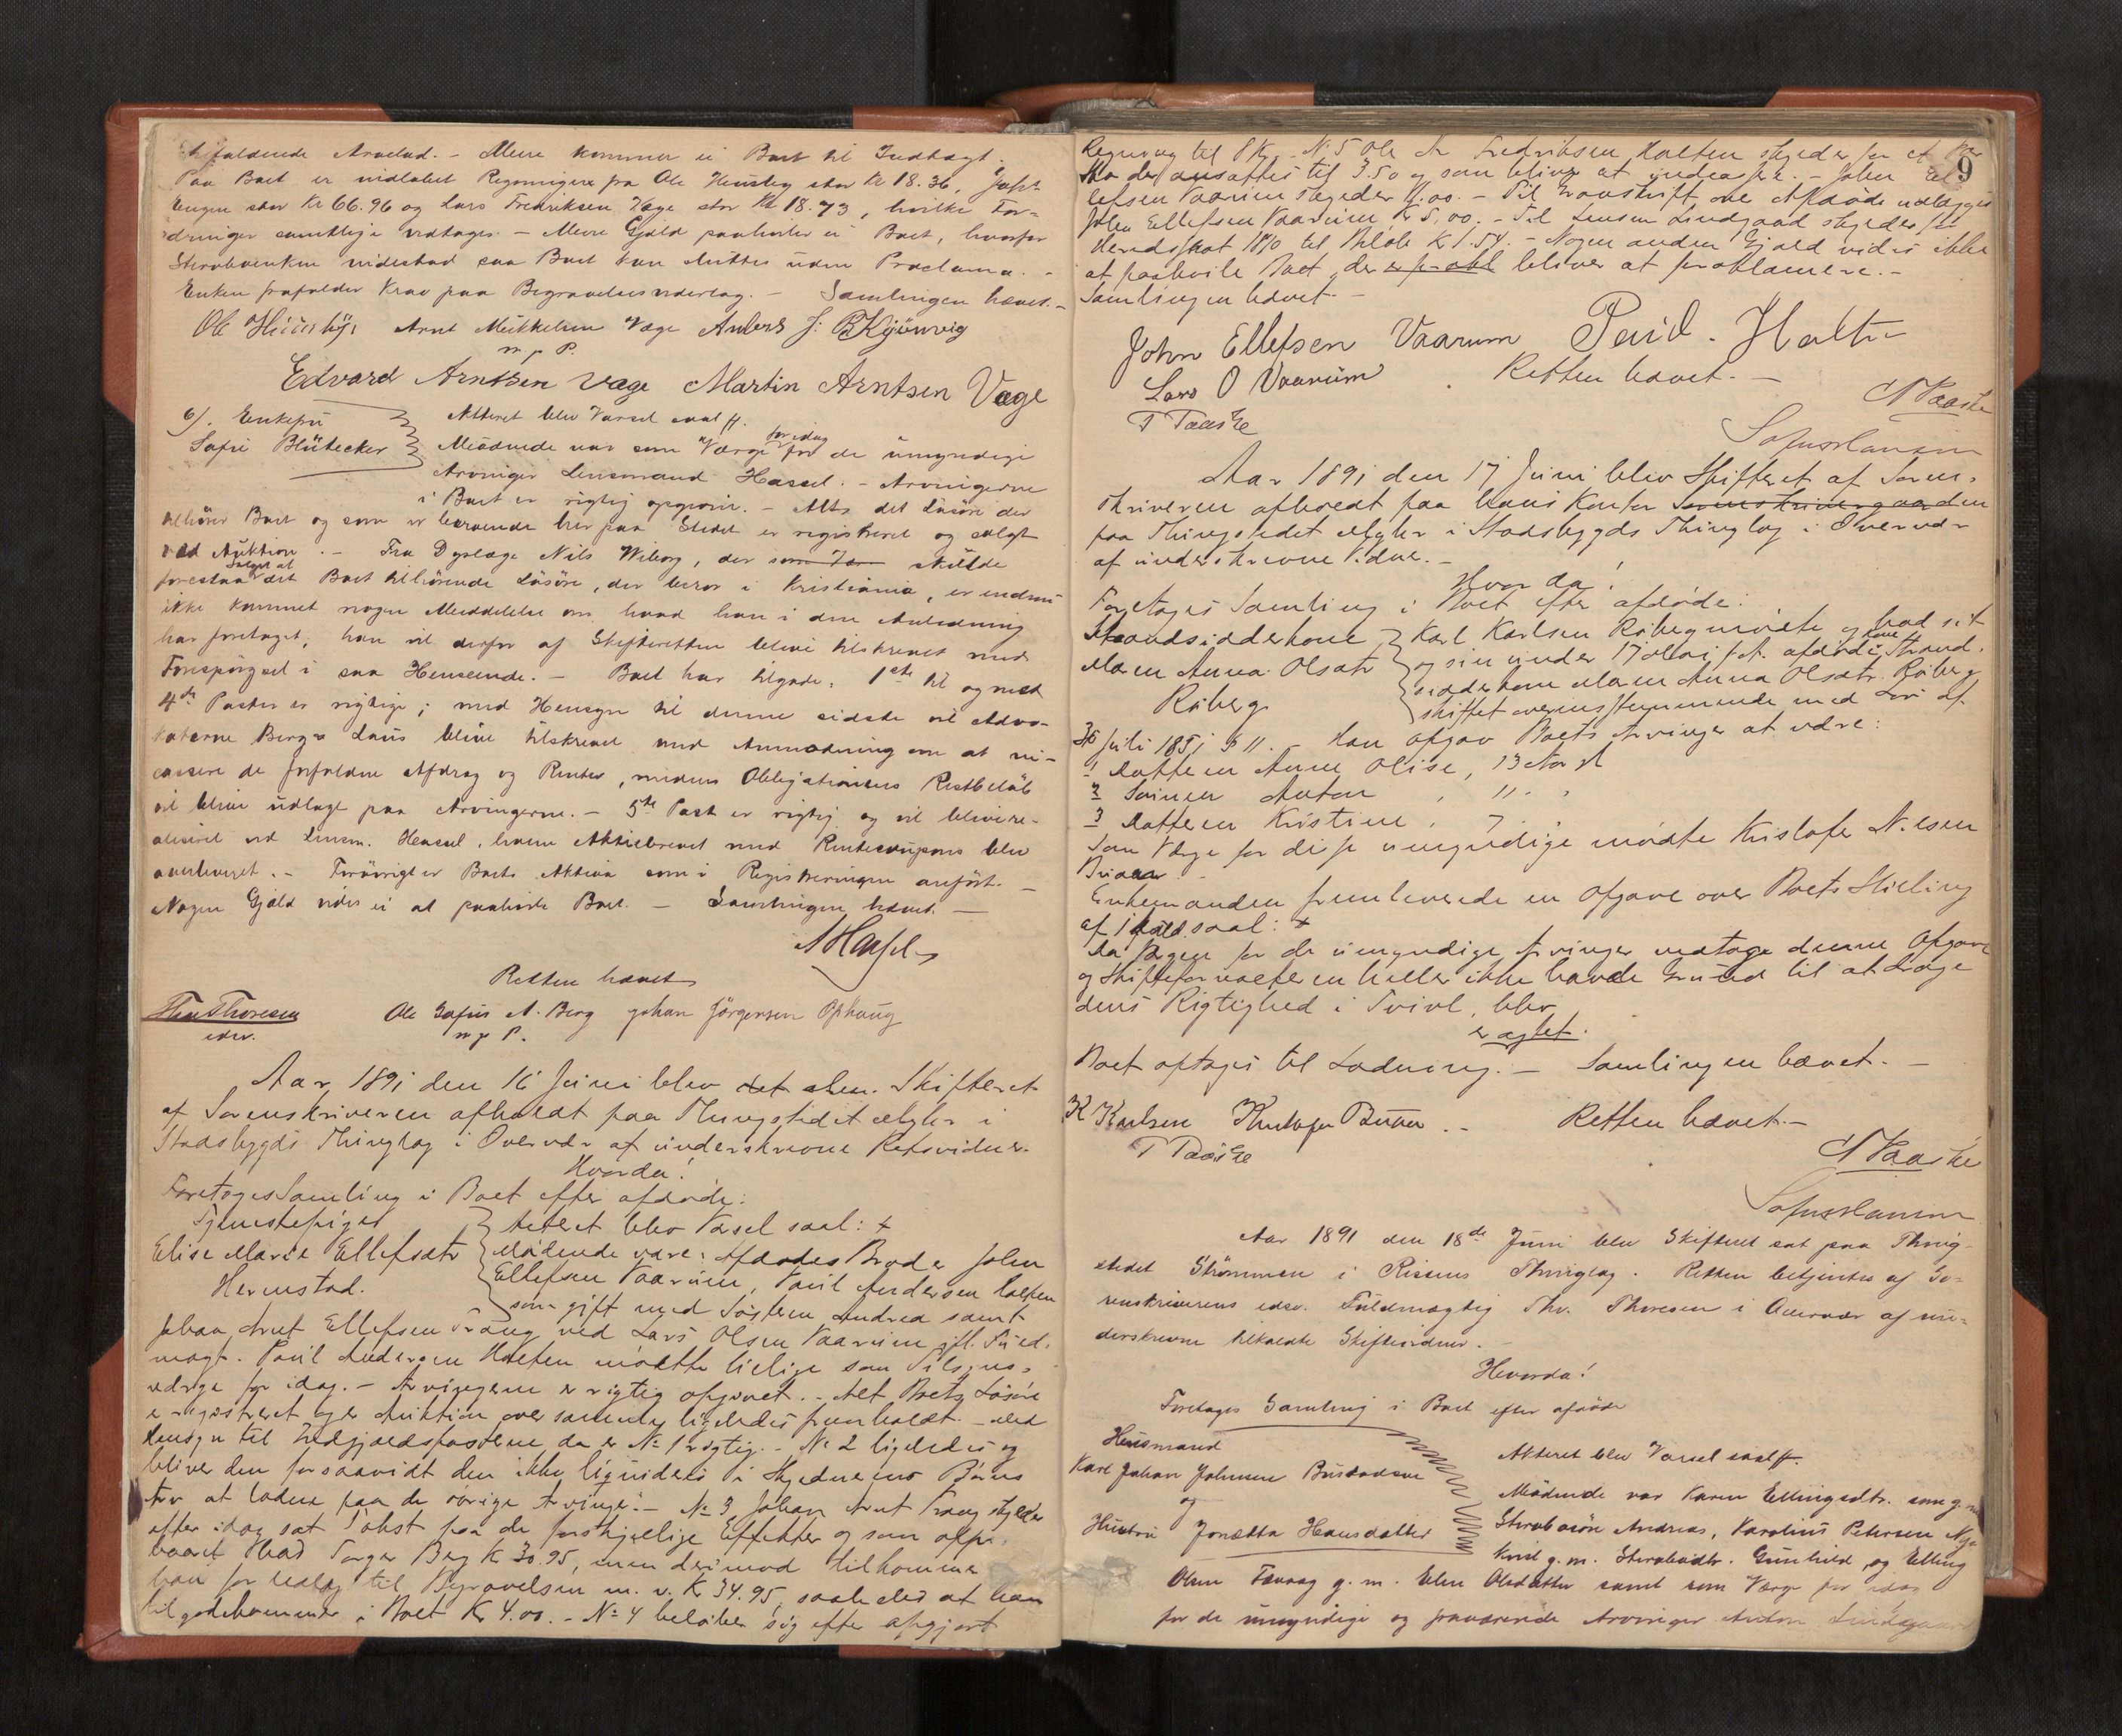 tilfaldende Arvelod. - Mere kommer ei Boet til Indtægt.
Paa Boet er indløbet Regninger fra Ole Huusby stor Kr 18.36,
Engen stor Kr 66.96 og Lars Fredriksen Væge stor Kr 18.73, hvilke For-
dringer samtlige vedtages. - Mere Gjæld paahviler ei Boet, hvorfor
Stervbøenken videstod saa Boet kan sluttes uden Proclama. -
Enken frafalder Krav paa Begravelsesvederlag. - Samlingen hævet. -
Ole Huusby Arnt Mikkelsen Væge Anders J: B Kjönvig
m p P.
Edvard Arntsen Væge Martin Arntsen Væge
6). Enkefru
Sofie Blütecker
Atteret blev Varsel saal ff.
Mødende var som Værge for idag for de umyndige
Arvinger Lensmand Hassel. - Arvingerne
i Boet er rigtig opgivne. - Alt det Løsøre der
tilhører Boet og som er beroende her paa Stedet er registreret og solgt
ved Auktion. - Fra Dyrlæge Nils Wiborg, der skulde
forestaa Salget af det Boet tilhörende Lösöre, der beror i Kristiania, er endnu
ikke kommet nogen Meddelelse om hvad han i den Anledning
har foretaget, han vil derfor af Skifteretten blive tilskrevet med
Forespörgsel i saa Henseende. - Boet har tilgode: 1ste til og med
4de Poster er rigtige; med Hensyn til denne sidste vil Advo-
katerne Berg & Laus blive tilskrevet med Anmodning om at in-
cassere de forfaldne Afdrag og Renter, medens Obligationens Restbelöb
vil blive udlagt paa Arvingerne. - 5te Post er rigtig og vil blive re-
aliseret ved Lensm. Hassel, hvem Aktiebrevet med Rentecoupons blev
overleveret. - Forövrigt er Boets Aktiva som i Registreringen anfört. -
Nogen Gjæld vides ei at paahvile Boet. - Samlingen hævet. -
A Hassel
Retten hævet
Thv Thoresen
edsv.
Ole Sofus A. Berg Johan Jörgensen Ophaug
m p P.
Aar 1891 den 16 Juni blev Skifteret
af Sorenskriveren afholdt paa Thingstedet Myhr i
Stadsbygds Thinglag i Overvær af underskrevne Retsvidner.
Hvorda!
Foretoges Samling i Boet efter afdøde:
Tjenestepige
Elise Marie Ellefsdtr
Hermstad.
Atteret blev Varsel saal: +
Mødende vare: Afdødes Broder John
Ellefsen Vaarum, Paul Andersen Halten
som gift med Søsteren Andrea samt
Johan Arnt Ellefsen Vrang ved Lars Olsen Vaarum ifl. Fuld-
magt. Paul Andersen Halten mødte tillige som Tilsyns-
værge for idag. - Arvingerne er rigtig opgivet. - Alt Boets Løsøre
er registreret og er Auktion over samme ligeledes fremholdt. - Med
Hensyn til Tilgjædsposterne da er No 1 rigtig. - No 2 ligeledes og
bliver den forsaavidt den ikke liquideres i Skyldnerens Børns
Arv at lodne paa de øvrige Arvinge. - No 3 Johan Arnt Vrang skylder
efter idag sat Takst paa de forskjellige Effekter og som
baaret Hos Torger Berg Kr 30.95, men derimod tilkommer
han for Udlæg til Begravelsen m. v. Kr 34.95, saaledes at han
tilgodekommer i Boet Kr 4.00. - No 4 beløber sig efter afgjort
9
Regning til 8 Kr. - No 5 Ole Fredriksen Halten skyder for et Par
Sko der ansattes til 3.50 og som bliver at indcassere. - John El-
lefsen Vaarum skyder 4.00. - Til Gravskrift over Afdøde udlægges
John Ellefsen Vaarum Kr 5,00. - Til Lensm Lindgaard skyldes for
Heredsskat 1890 til Beløb Kr 1.54. - Nogen anden Gjæld vides ikke
at paahvile Boet, der bliver at proklamere. -
Samlingen hævet. -
John Ellefsen Vaarum Paul. Halten
Lars O Vaarum Retten hævet. -
T Taaske N Vaaske
Sofus Hansen
Aar 1891 den 17 Juni blev Skifteret af Soren-
skriveren afholdt paa hans Kontor Sorenskrivergaarden
paa Thingstedet Myhr i Stadsbygds Thinglag i Overvær
af underskrevne Vidne. -
Hvor da!
Foretoges Samling i Boet efter afdøde:
Strandsidderkone
Maren Anna Olsdtr
Råberg
Karl Karlsen Råberg mødte og bad sit
og sin under 17 Mai f. A. afdøde Kone Strand-
sidderkone Maren Anna Olsdtr. Råberg
skiftet overensstemmende med Lov af
30 Juli 1851 § 11. - Han opgav Boets Arvinger at være:
1 Datteren Anne Olise, 13 Aar gl
2 Sønnen Anton , 11 " "
3 Datteren Kristine , 7 "
Som Værge for disse umyndige mødte Kristofer Nilsen
Bruaas. -
Enkemanden fremleverede en Opgave over Boets Stilling
af Indhold saal: +
Da Værgen for de umyndige Arvinger vedtoge denne Opgave
og Skifteforvalteren heller ikke havde Grund til at drage
dens Rigtighed i Tvivl, blev
eragtet.
Boet optages til Lodning. - Samlingen hævet. -
K Karlsen Kristofer Bruaa. - Retten hævet. -
T Taaske N Vaaske
Sofus Hansen
Aar 1891 den 18de Juni blev Skifteret sat paa Thing-
stedet Strömmen i Rissens Thinglag. Retten betjentes af So-
renskriverens edsv. Fuldmægtig Thv. Thoresen i Overvær af un-
derskrevne tilkaldte Skiftevidner. -
Hvorda!
Foretoges Samling i Boet efter afdöde
Husmand
Karl Johan Johnsen Bustadsen
og
Hustru Jonetta Hansdatter
Atteret blev Varsel saal ff.
Mödende var Karen Ellingsdtr. som g.m
Stervbosön Andreas, Karolius Petersen
Kvil g. m. Stervbodtr. Gunhild, og Elling
Olsen Fævaag g. m. Elen Olsdatter samt som Værge for idag
for de umyndige og fraværende Arvinger Anton Lindgaard